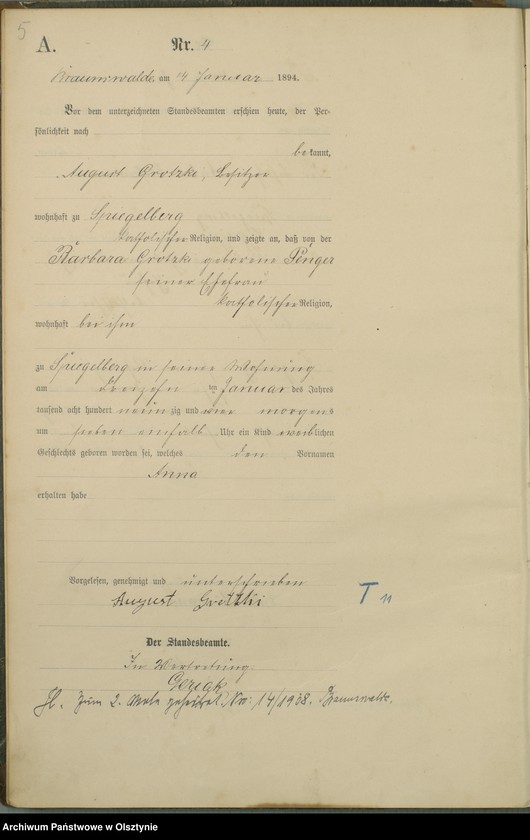 5
A.
Nr. 4
Braunswalde, am 14 Januar 1894.
Vor dem unterzeichneten Standesbeamten erschien heute, der Per-
sönlichkeit nach
bekannt,
August Grotzki, Besitzer
wohnhaft zu Spiegelberg
katholischer Religion, und zeigte an, daß von der
Barbara Grotzki geborene Penger
seiner Ehefrau
katholischer Religion,
wohnhaft bei ihm
zu Spiegelberg in seiner Wohnung
am dreizehn ten Januar des Jahres
tausend acht hundert neun zig und vier morgens
um sieben einhalb Uhr ein Kind weiblichen
Geschlechts geboren worden sei, welches den Vornamen
Anna
erhalten habe
Vorgelesen, genehmigt und unterschrieben
August Grotzki
T 11
Der Standesbeamte.
In Vertretung
Gerigk
H. Zum 2. Male geheiratet Nr: 14/1938. Braunswalde.
Archiwum Państwowe w Olsztynie